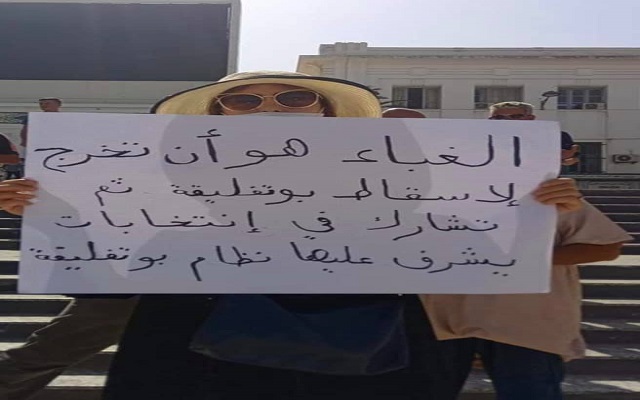 الغباء هو أن تخرج
لإسقاط بوتفليقة ثم
تشارك في إنتخابات
يشرف عليها نظام بوتفليقة